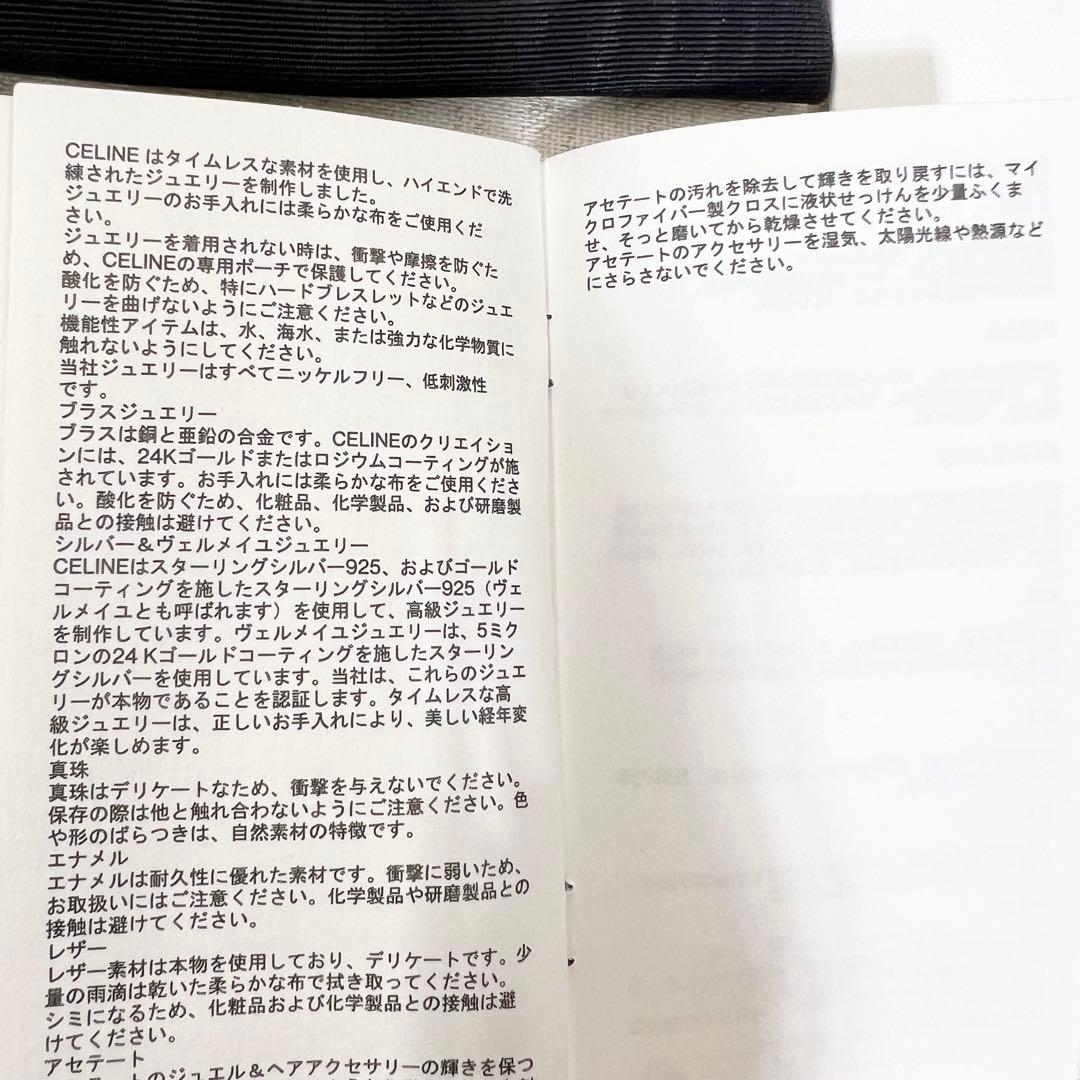 CELINE はタイムレスな素材を使用し、ハイエンドで洗
練されたジュエリーを制作しました。
ジュエリーのお手入れには柔らかな布をご使用くだ
さい。
ジュエリーを着用されない時は、衝撃や摩擦を防ぐた
め、CELINEの専用ポーチで保護してください。
酸化を防ぐため、特にハードブレスレットなどのジュエ
リーを曲げないようにご注意ください。
機能性アイテムは、水、海水、または強力な化学物質に
触れないようにしてください。
当社ジュエリーはすべてニッケルフリー、低刺激性
です。
ブラスジュエリー
ブラスは銅と亜鉛の合金です。CELINEのクリエイショ
ンには、24Kゴールドまたはロジウムコーティングが施
されています。お手入れには柔らかな布をご使用くださ
い。酸化を防ぐため、化粧品、化学製品、および研磨製
品との接触は避けてください。
シルバー&ヴェルメイユジュエリー
CELINEはスターリングシルバー925、およびゴールド
コーティングを施したスターリングシルバー925（ヴェ
ルメイユとも呼ばれます）を使用して、高級ジュエリー
を制作しています。ヴェルメイユジュエリーは、5ミク
ロンの24 Kゴールドコーティングを施したスターリン
グシルバーを使用しています。当社は、これらのジュエ
リーが本物であることを認証します。タイムレスな高
級ジュエリーは、正しいお手入れにより、美しい経年変
化が楽しめます。
真珠
真珠はデリケートなため、衝撃を与えないでください。
保存の際は他と触れ合わないようにご注意ください。色
や形のばらつきは、自然素材の特徴です。
エナメル
エナメルは耐久性に優れた素材です。衝撃に弱いため、
お取扱いにはご注意ください。化学製品や研磨製品との
接触は避けてください。
レザー
レザー素材は本物を使用しており、デリケートです。少
量の雨滴は乾いた柔らかな布で拭き取ってください。
シミになるため、化粧品および化学製品との接触は避
けてください。
アセテート
のジュエル&ヘアアクセサリーの輝きを保つ
アセテートの汚れを除去して輝きを取り戻すには、マイ
クロファイバー製クロスに液状せっけんを少量ふくま
せ、そっと磨いてから乾燥させてください。
アセテートのアクセサリーを湿気、太陽光線や熱源など
にさらさないでください。